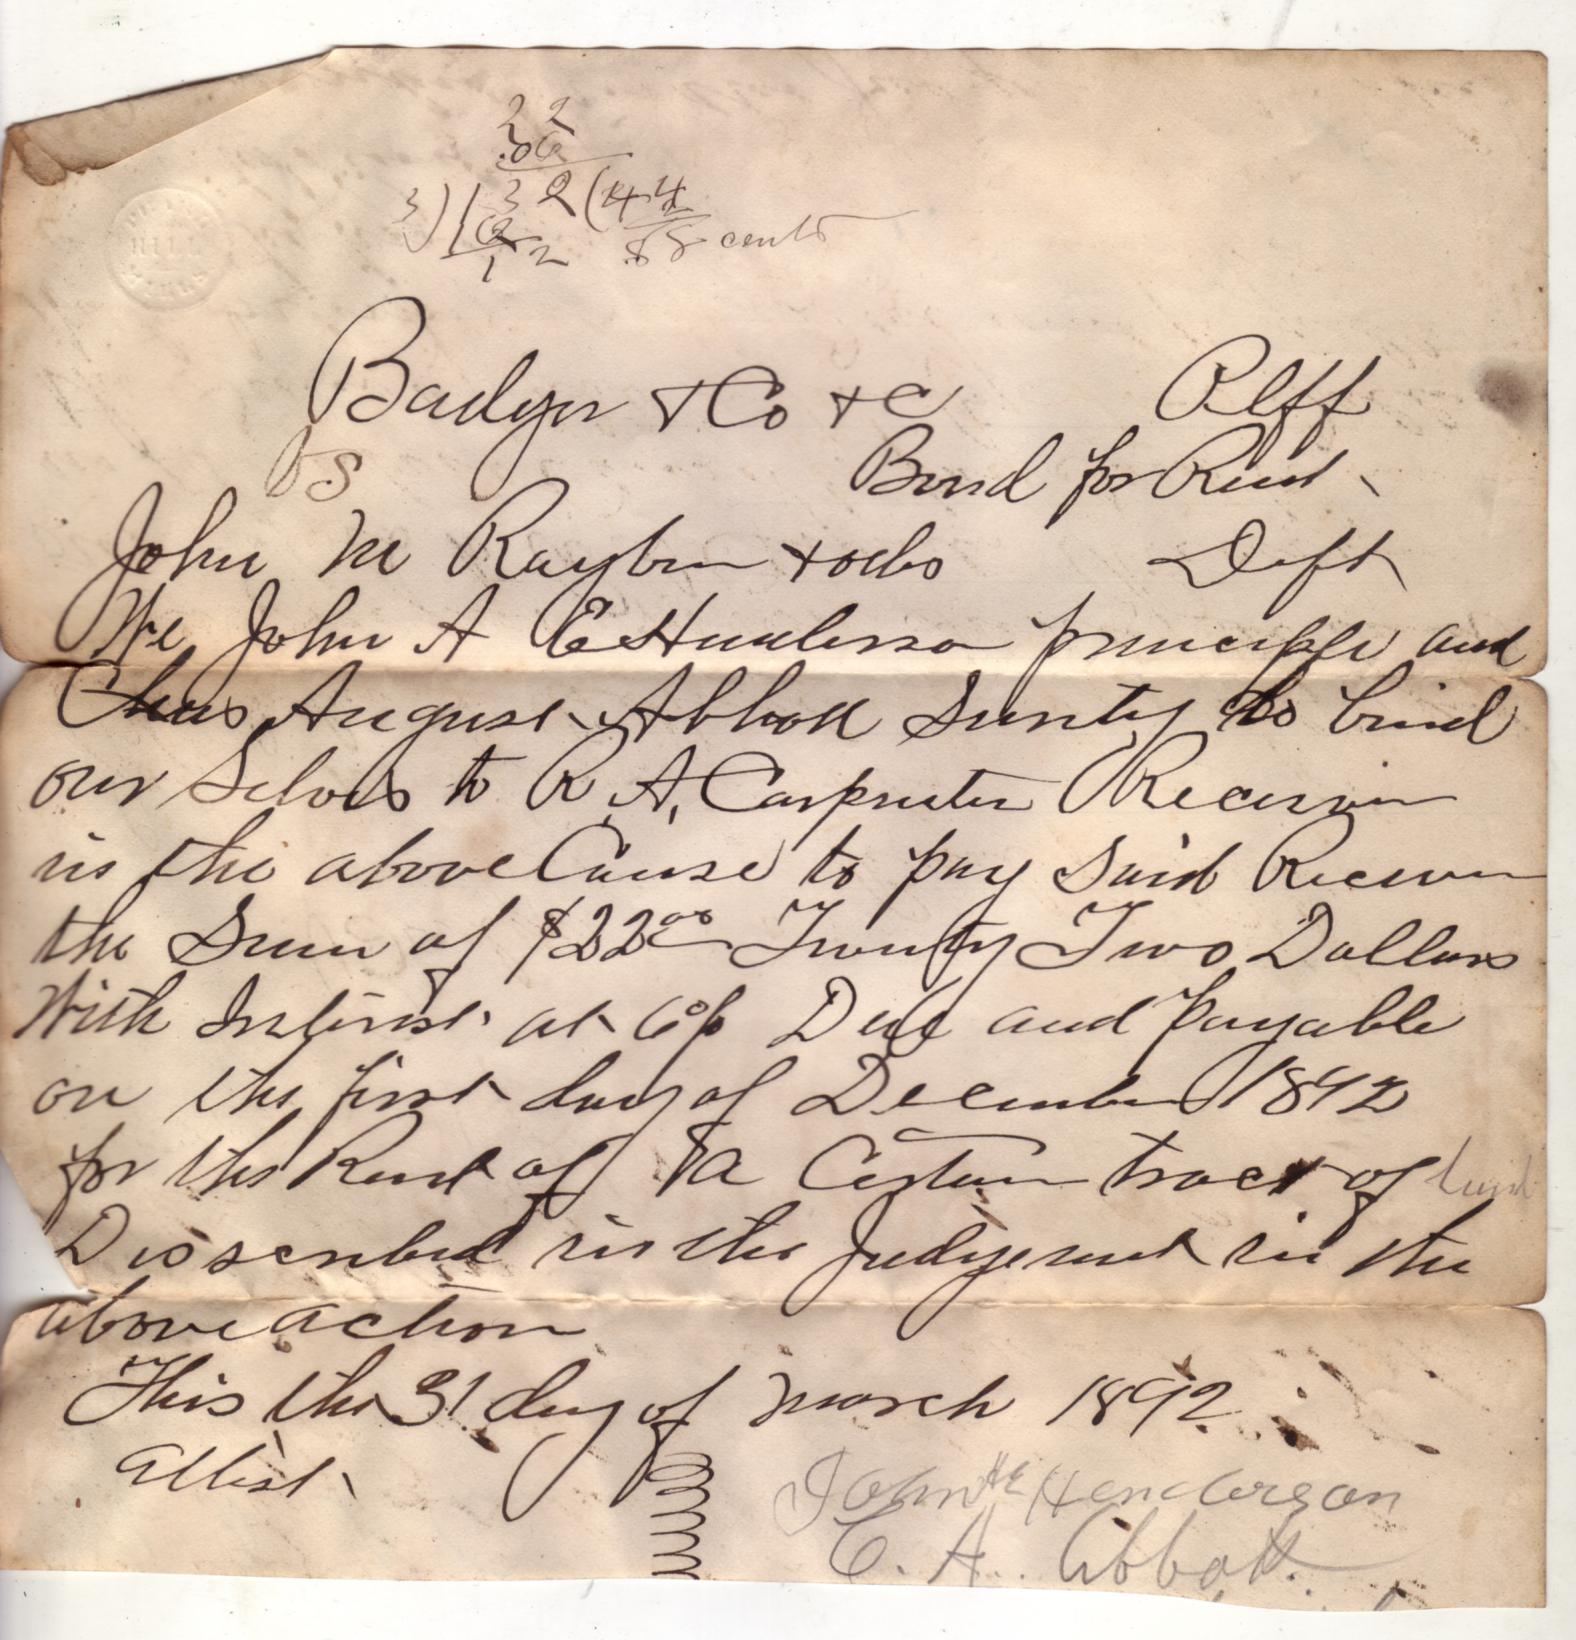 22
.06
3)132(44
12 2
12 .88 cents
HILL
Badger & Co &C Plff
VS Bond for Rent
John M Rayburn & others Deft
We John A E Henderson principle and
Chas August Abbott Surity to bind
our Selves to R. A. Carpenter Receiver
in the above Cause to pay Said Receiver
the Sum of $22.00 Twenty Two Dollars
With Interest at 6% Due and payable
on the first day of December 1892
for the Rent of a Certain tract of land
Disscribed in the Judgement in the
above action
This the 31 day of March 1892
Attest
John Henderson
C. A. Abbott.